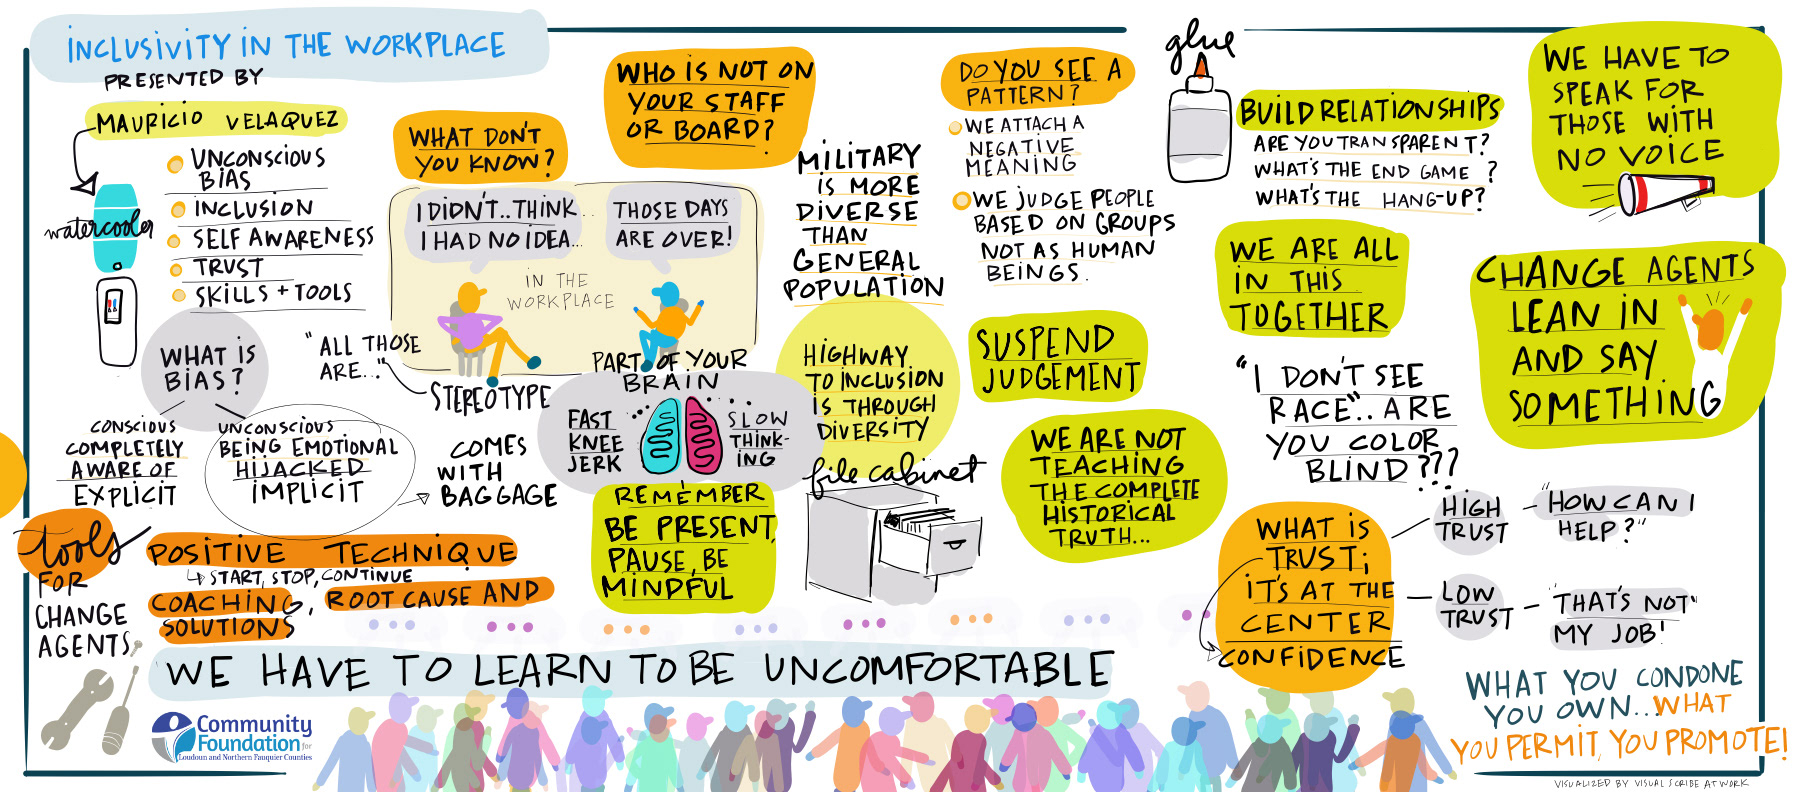 INCLUSIVITY IN THE WORKPLACE
PRESENTED BY
MAURICIO VELAQUEZ
watercooler
UNCONSCIOUS
BIAS
INCLUSION
SELF AWARENESS
TRUST
SKILLS + TOOLS
WHAT IS
BIAS?
CONSCIOUS
COMPLETELY
AWARE OF
EXPLICIT
UNCONSCIOUS
BEING EMOTIONAL
HIJACKED
IMPLICIT
"ALL THOSE
ARE..."
STEREOTYPE
COMES
WITH
BAGGAGE
WHAT DON'T
YOU KNOW?
I DIDN'T.. THINK...
I HAD NO IDEA...
THOSE DAYS
ARE OVER!
IN THE
WORKPLACE
PART OF YOUR
BRAIN
FAST
KNEE
JERK
SLOW
THINK-
ING
REMEMBER
BE PRESENT,
PAUSE, BE
MINDFUL
WHO IS NOT ON
YOUR STAFF
OR BOARD?
MILITARY
IS MORE
DIVERSE
THAN
GENERAL
POPULATION
HIGHWAY
TO INCLUSION
IS THROUGH
DIVERSITY
file cabinet
DO YOU SEE A
PATTERN?
WE ATTACH A
NEGATIVE
MEANING
WE JUDGE PEOPLE
BASED ON GROUPS
NOT AS HUMAN
BEINGS.
SUSPEND
JUDGEMENT
WE ARE NOT
TEACHING
THE COMPLETE
HISTORICAL
TRUTH...
glue
BUILD RELATIONSHIPS
ARE YOU TRANSPARENT?
WHAT'S THE END GAME ?
WHAT'S THE HANG-UP?
WE ARE ALL
IN THIS
TOGETHER
"I DON'T SEE
RACE".. ARE
YOU COLOR
BLIND???
WE HAVE TO
SPEAK FOR
THOSE WITH
NO VOICE
CHANGE AGENTS
LEAN IN
AND SAY
SOMETHING
WHAT IS
TRUST;
IT'S AT THE
CENTER
CONFIDENCE
HIGH
TRUST
"HOW CAN I
HELP?"
LOW
TRUST
"THAT'S NOT"
MY JOB!
tools
FOR
CHANGE
AGENTS
POSITIVE TECHNIQUE
START, STOP, CONTINUE
COACHING, ROOT CAUSE AND
SOLUTIONS
WE HAVE TO LEARN TO BE UNCOMFORTABLE
Community
Foundation for
Loudoun and Northern Fauquier Counties
WHAT YOU CONDONE
YOU OWN... WHAT
YOU PERMIT, YOU PROMOTE!
VISUALIZED BY VISUAL SCRIBE AT WORK